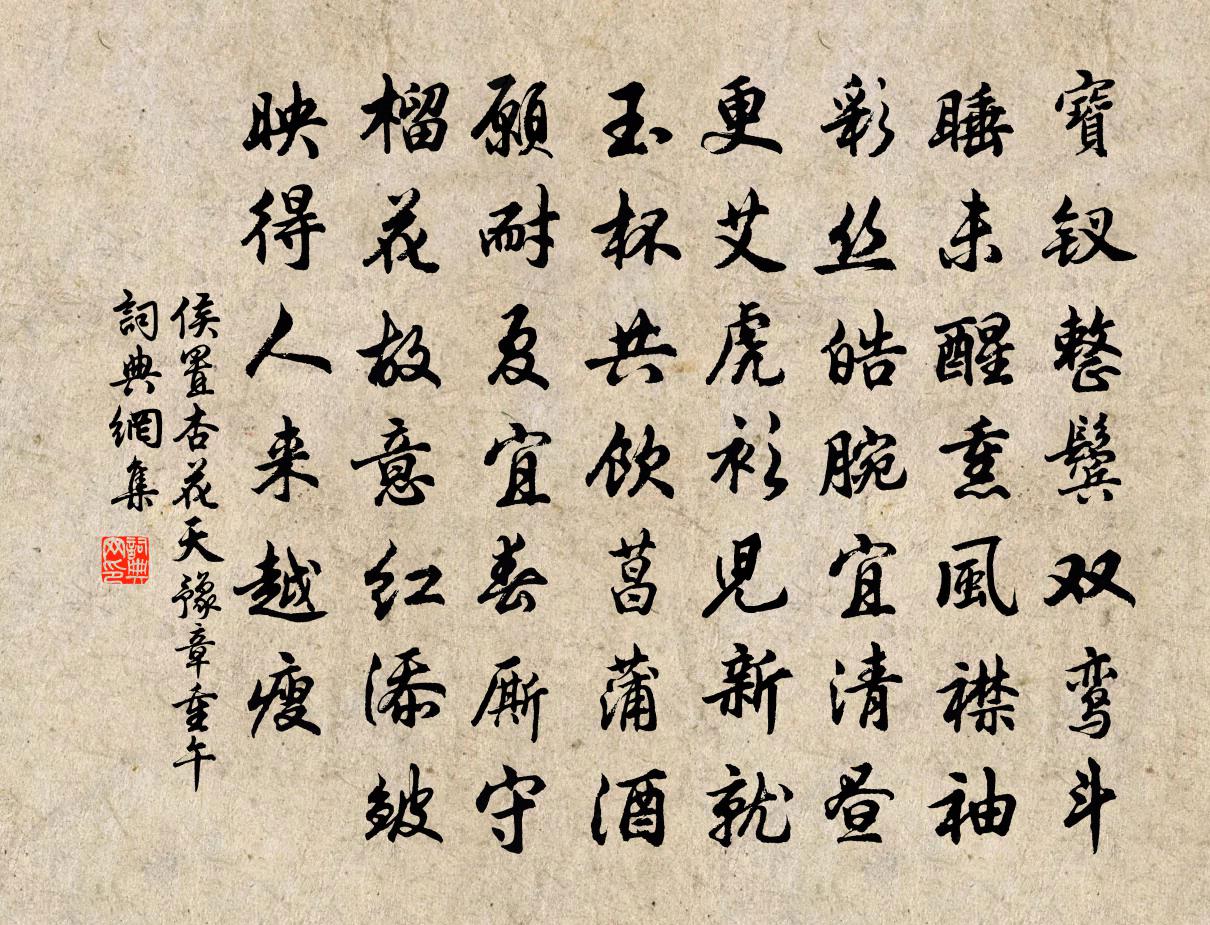 寶钗整鬓双鸾斗
睡未醒熏風襟袖
彩丝皓腕宜清昼
更艾虎衫儿新就
玉杯共饮菖蒲酒
願耐夏宜春厮守
榴花故意红添皱
映得人来越瘦
侯置杏花天豫章重午
詞典網集
詞典
网印